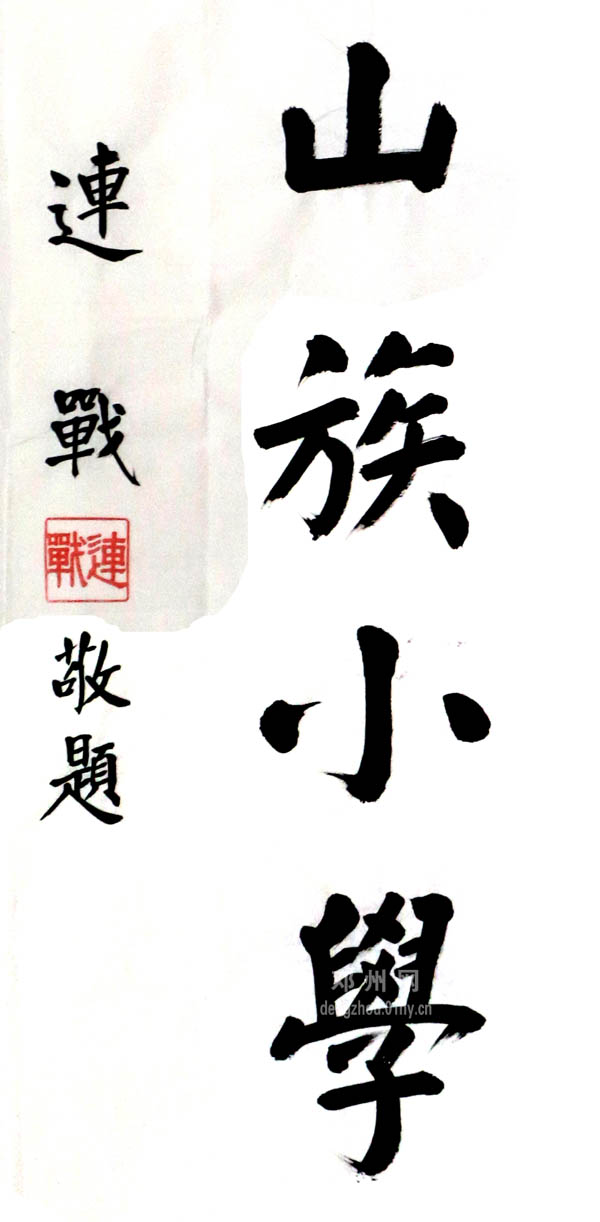 山族小學
連戰
連戰
敬題
邓州网
dengzhou.01ny.cn